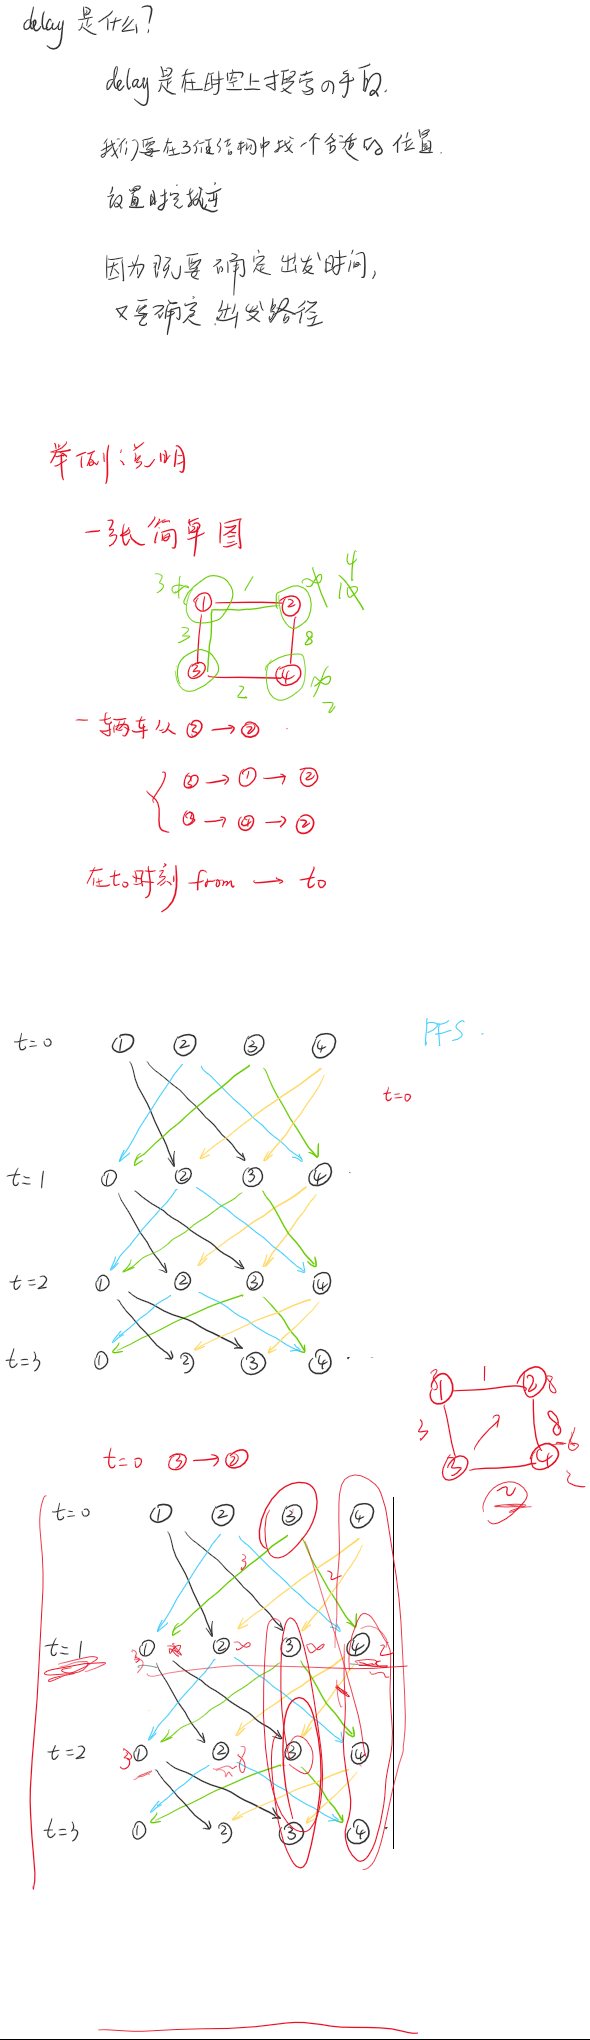 delay 是什么?
delay 是在时空上搜索の手段.
我们要在3维结构中找一个合适的位置.
设置时空
因为既要确定出发时间,
又要确定出发路径
举例说明
一张简单图
4
3 1
① ②
3 8
③ ④
2 2
一辆车从 ③ → ②
③ → ① → ②
③ → ④ → ②
在t₀时刻 from → to
PFS
t=0 ① ② ③ ④
t=0
t=1 ① ② ③ ④
t=2 ① ② ③ ④
t=3 ① ② ③ ④
1
① ② 8
3 8
③ ④
2
t=0 ③ → ②
t=0 ① ② ③ ④
3 2
t=1 ① ② ∞ ③ ∞ ④ 2
3
t=2 3 ① ② 8 ③ ④
t=3 ① ② ③ ④